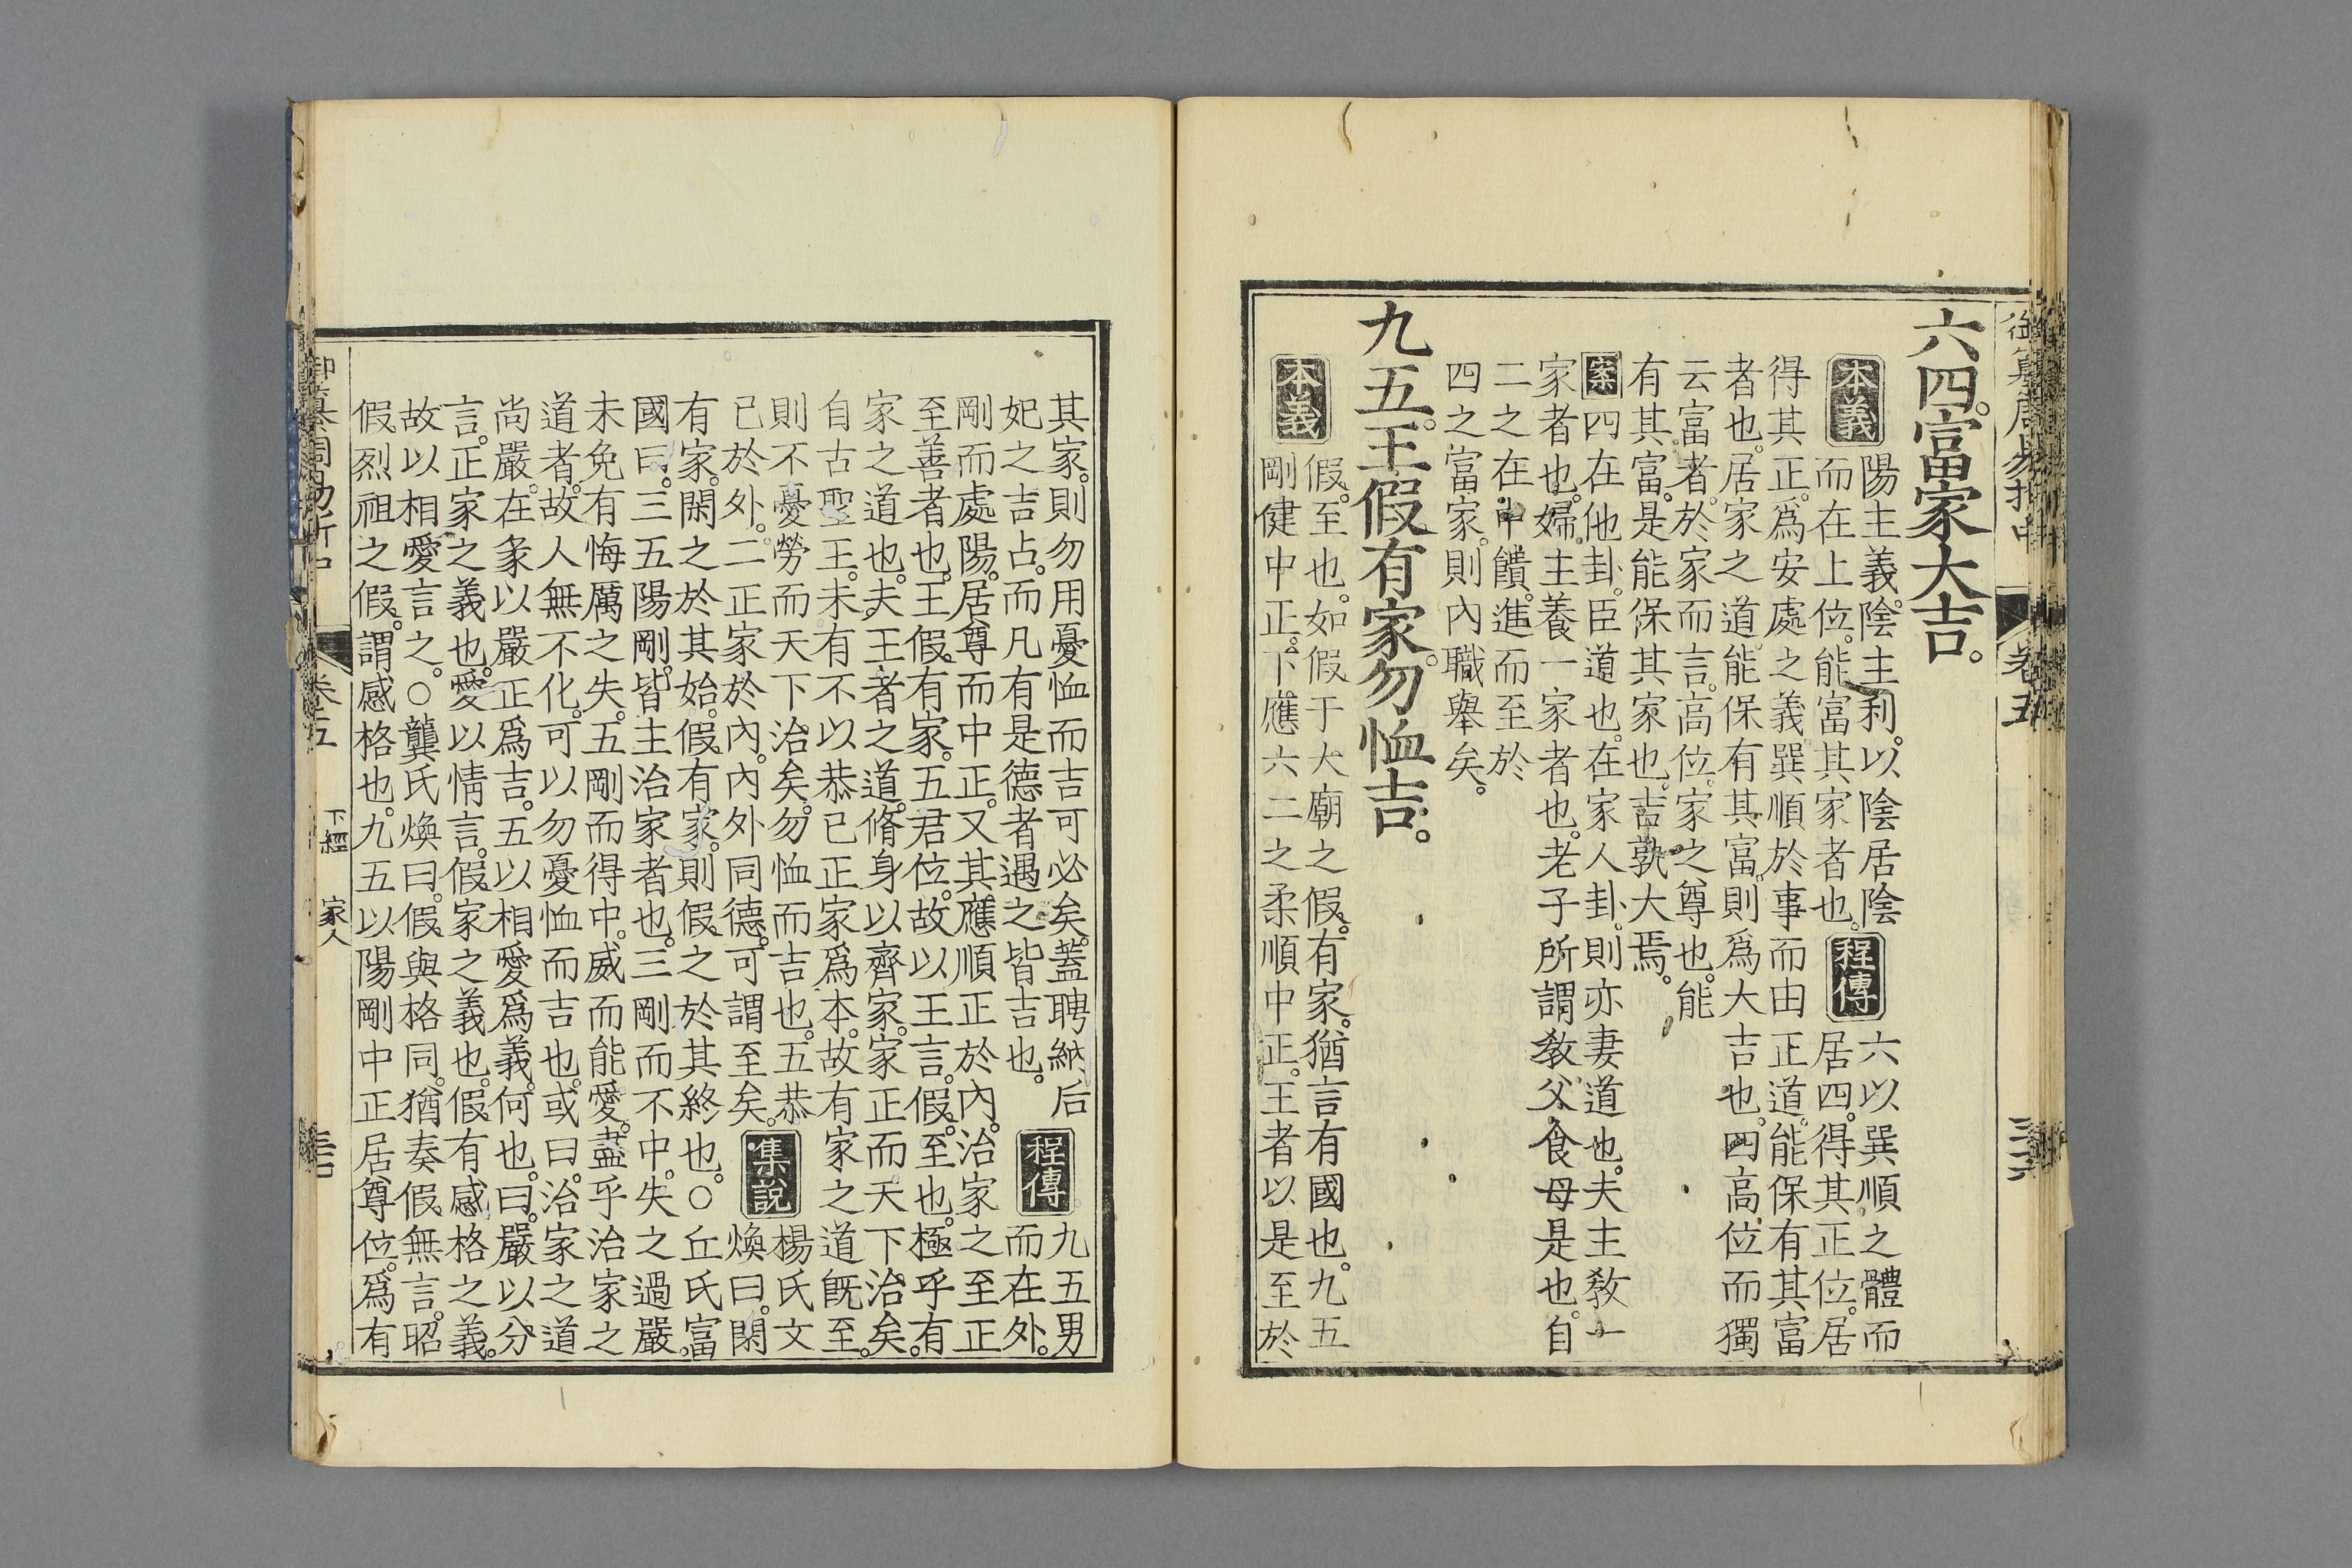 御纂周易折中 卷五 三十六
六四。富家大吉。
本義
陽主義。陰主利。以陰居陰
而在上位。能富其家者也。
程傳
六以巽順之體而
居四。得其正位。居
得其正。爲安處之義。巽順於事而由正道。能保有其富
者也。居家之道。能保有其富。則爲大吉也。四高位而獨
云富者。於家而言。高位。家之尊也。能
有其富。是能保其家也。吉孰大焉。
案四在他卦。臣道也。在家人卦。則亦妻道也。夫主敎一
家者也。婦。主養一家者也。老子所謂敎父食母是也。自
二之在中饋。進而至於
四之富家。則內職舉矣。
九五。王假有家。勿恤吉。
本義
假。至也。如假于大廟之假。有家。猶言有國也。九五
剛健中正。下應六二之柔順中正。王者以是至於
其家。則勿用憂恤而吉可必矣。蓋聘納后
妃之吉占。而凡有是德者遇之皆吉也。
程傳
九五男
而在外。
剛而處陽。居尊而中正。又其應順正於內。治家之至正
至善者也。王假。有家。五君位。故以王言。假。至也。極乎有
家之道也。夫王者之道。脩身以齊家。家正而天下治矣。
自古聖王。未有不以恭已正家爲本。故有家之道旣至。
則不憂勞而天下治矣。勿恤而吉也。五恭
已於外。二正家於內。內外同德。可謂至矣。
集說
楊氏文
煥曰。閑
有家。閑之於其始。假有家。則假之於其終也。○丘氏富
國曰。三五陽剛。皆主治家者也。三剛而不中。失之過嚴。
未免有悔厲之失。五剛而得中。威而能愛。蓋乎治家之
道者。故人無不化。可以勿憂恤而吉也。或曰。治家之道
尚嚴。在彖以嚴正爲吉。五以相愛爲義。何也。曰。嚴以分
言。正家之義也。愛以情言。假家之義也。假有感格之義。
故以相愛言之。○龔氏煥曰。假與格同。猶奏假無言。昭
假烈祖之假。謂感格也。九五以陽剛中正居尊位。爲有
卷五 下經 家人